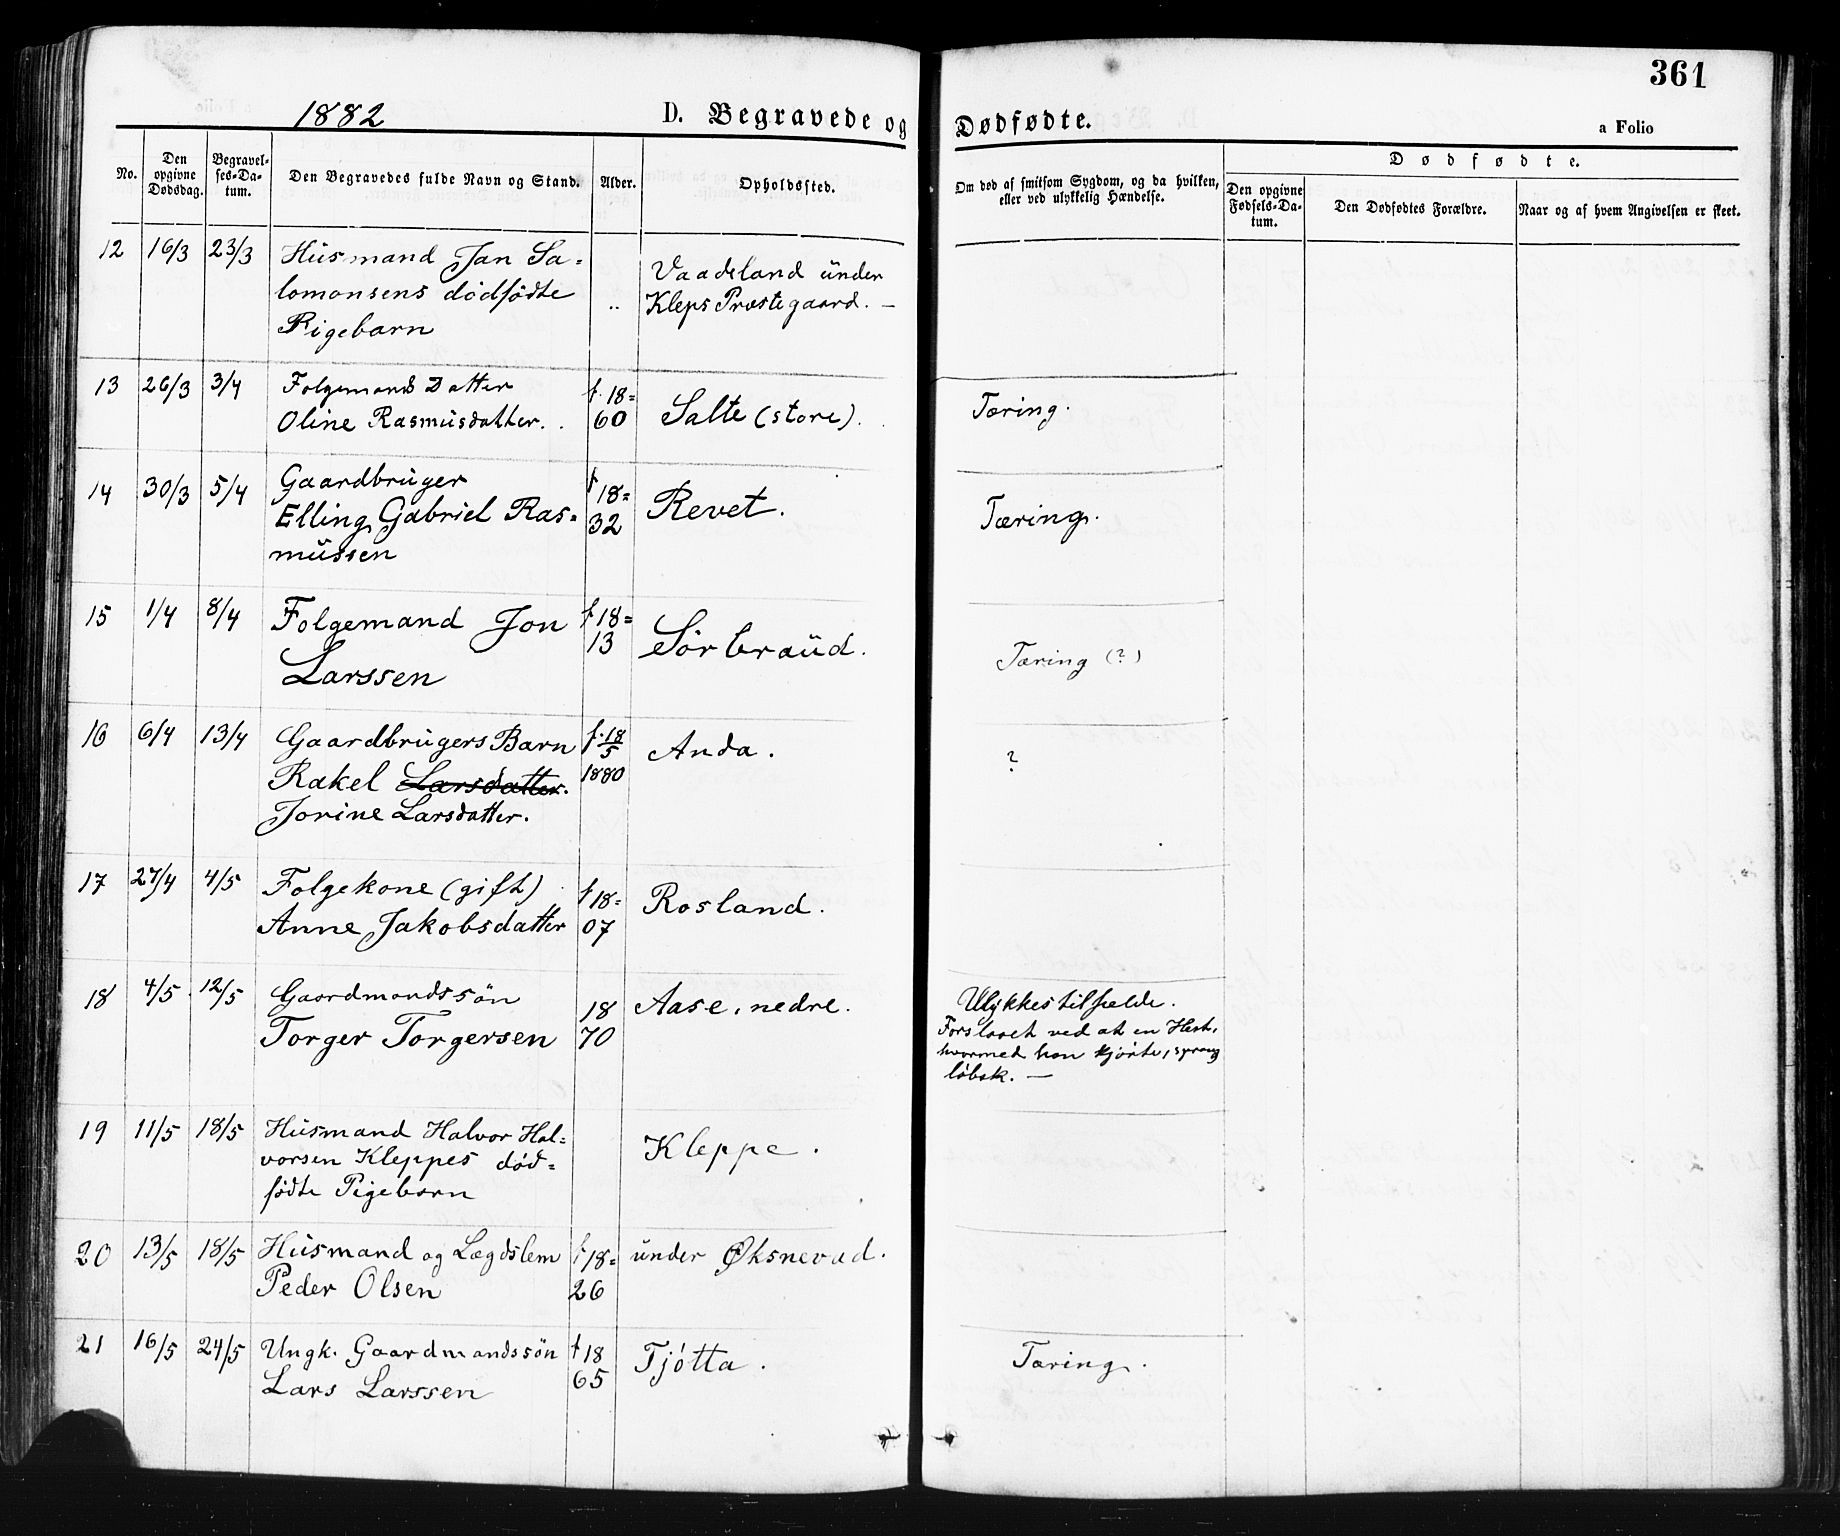 361
1882 D. Begravede og Dødfødte.
a Folio
No. Den opgivne Dødsdag. Begravelses-Datum. Den Begravedes fulde Navn og Stand. Alder. Opholdssted. Om død af smitsom Sygdom, og da hvilken, eller ved ulykkelig Hændelse. Dødfødte.
Den opgivne Fødsels-Datum. Den Dødfødtes Forældre. Naar og af hvem Angivelsen er skeet.
12 16/3 23/3 Husmand Jan Sa=
lomonsens dødfødte
Pigebarn
..
Vaadeland under
Kleps Præstegaard. —
13 26/3 3/4 Folgemands Datter
Oline Rasmusdatter.
f. 18=
60
Salte (store).
Tæring.
14 30/3 5/4 Gaardbruger
Elling Gabriel Ras=
mussen
f 18=
32
Revet.
Tæring.
15 1/4 8/4 Folgemand Jon
Larssen
f 18=
13
Sörbraud.
Tæring (?)
16 6/4 13/4 Gaardbrugers Barn
Rakel Larsdatter.
Jorine Larsdatter.
f. 18/5
1880
Anda.
?
17 27/4 4/5 Folgekone (gift)
Anne Jakobsdatter
f 18=
07
Rosland.
18 4/5 12/5 Gaardmandssön
Torger Torgersen
18
70
Aase, nedre.
Ulykkestilfælde.
Forslaaet ved at en Hest,
hvormed han kjörte, sprang
löbsk. —
19 11/5 18/5 Husmand Halvor Hal=
vorsen Kleppes död=
födte Pigebarn
Kleppe.
20 13/5 18/5 Husmand og Lægdslem
Peder Olsen
f 18=
26
under Øksnevad.
21 16/5 24/5 Ungk. Gaardmandssön
Lars Larssen
f 18
65
Tjötta.
Tæring.